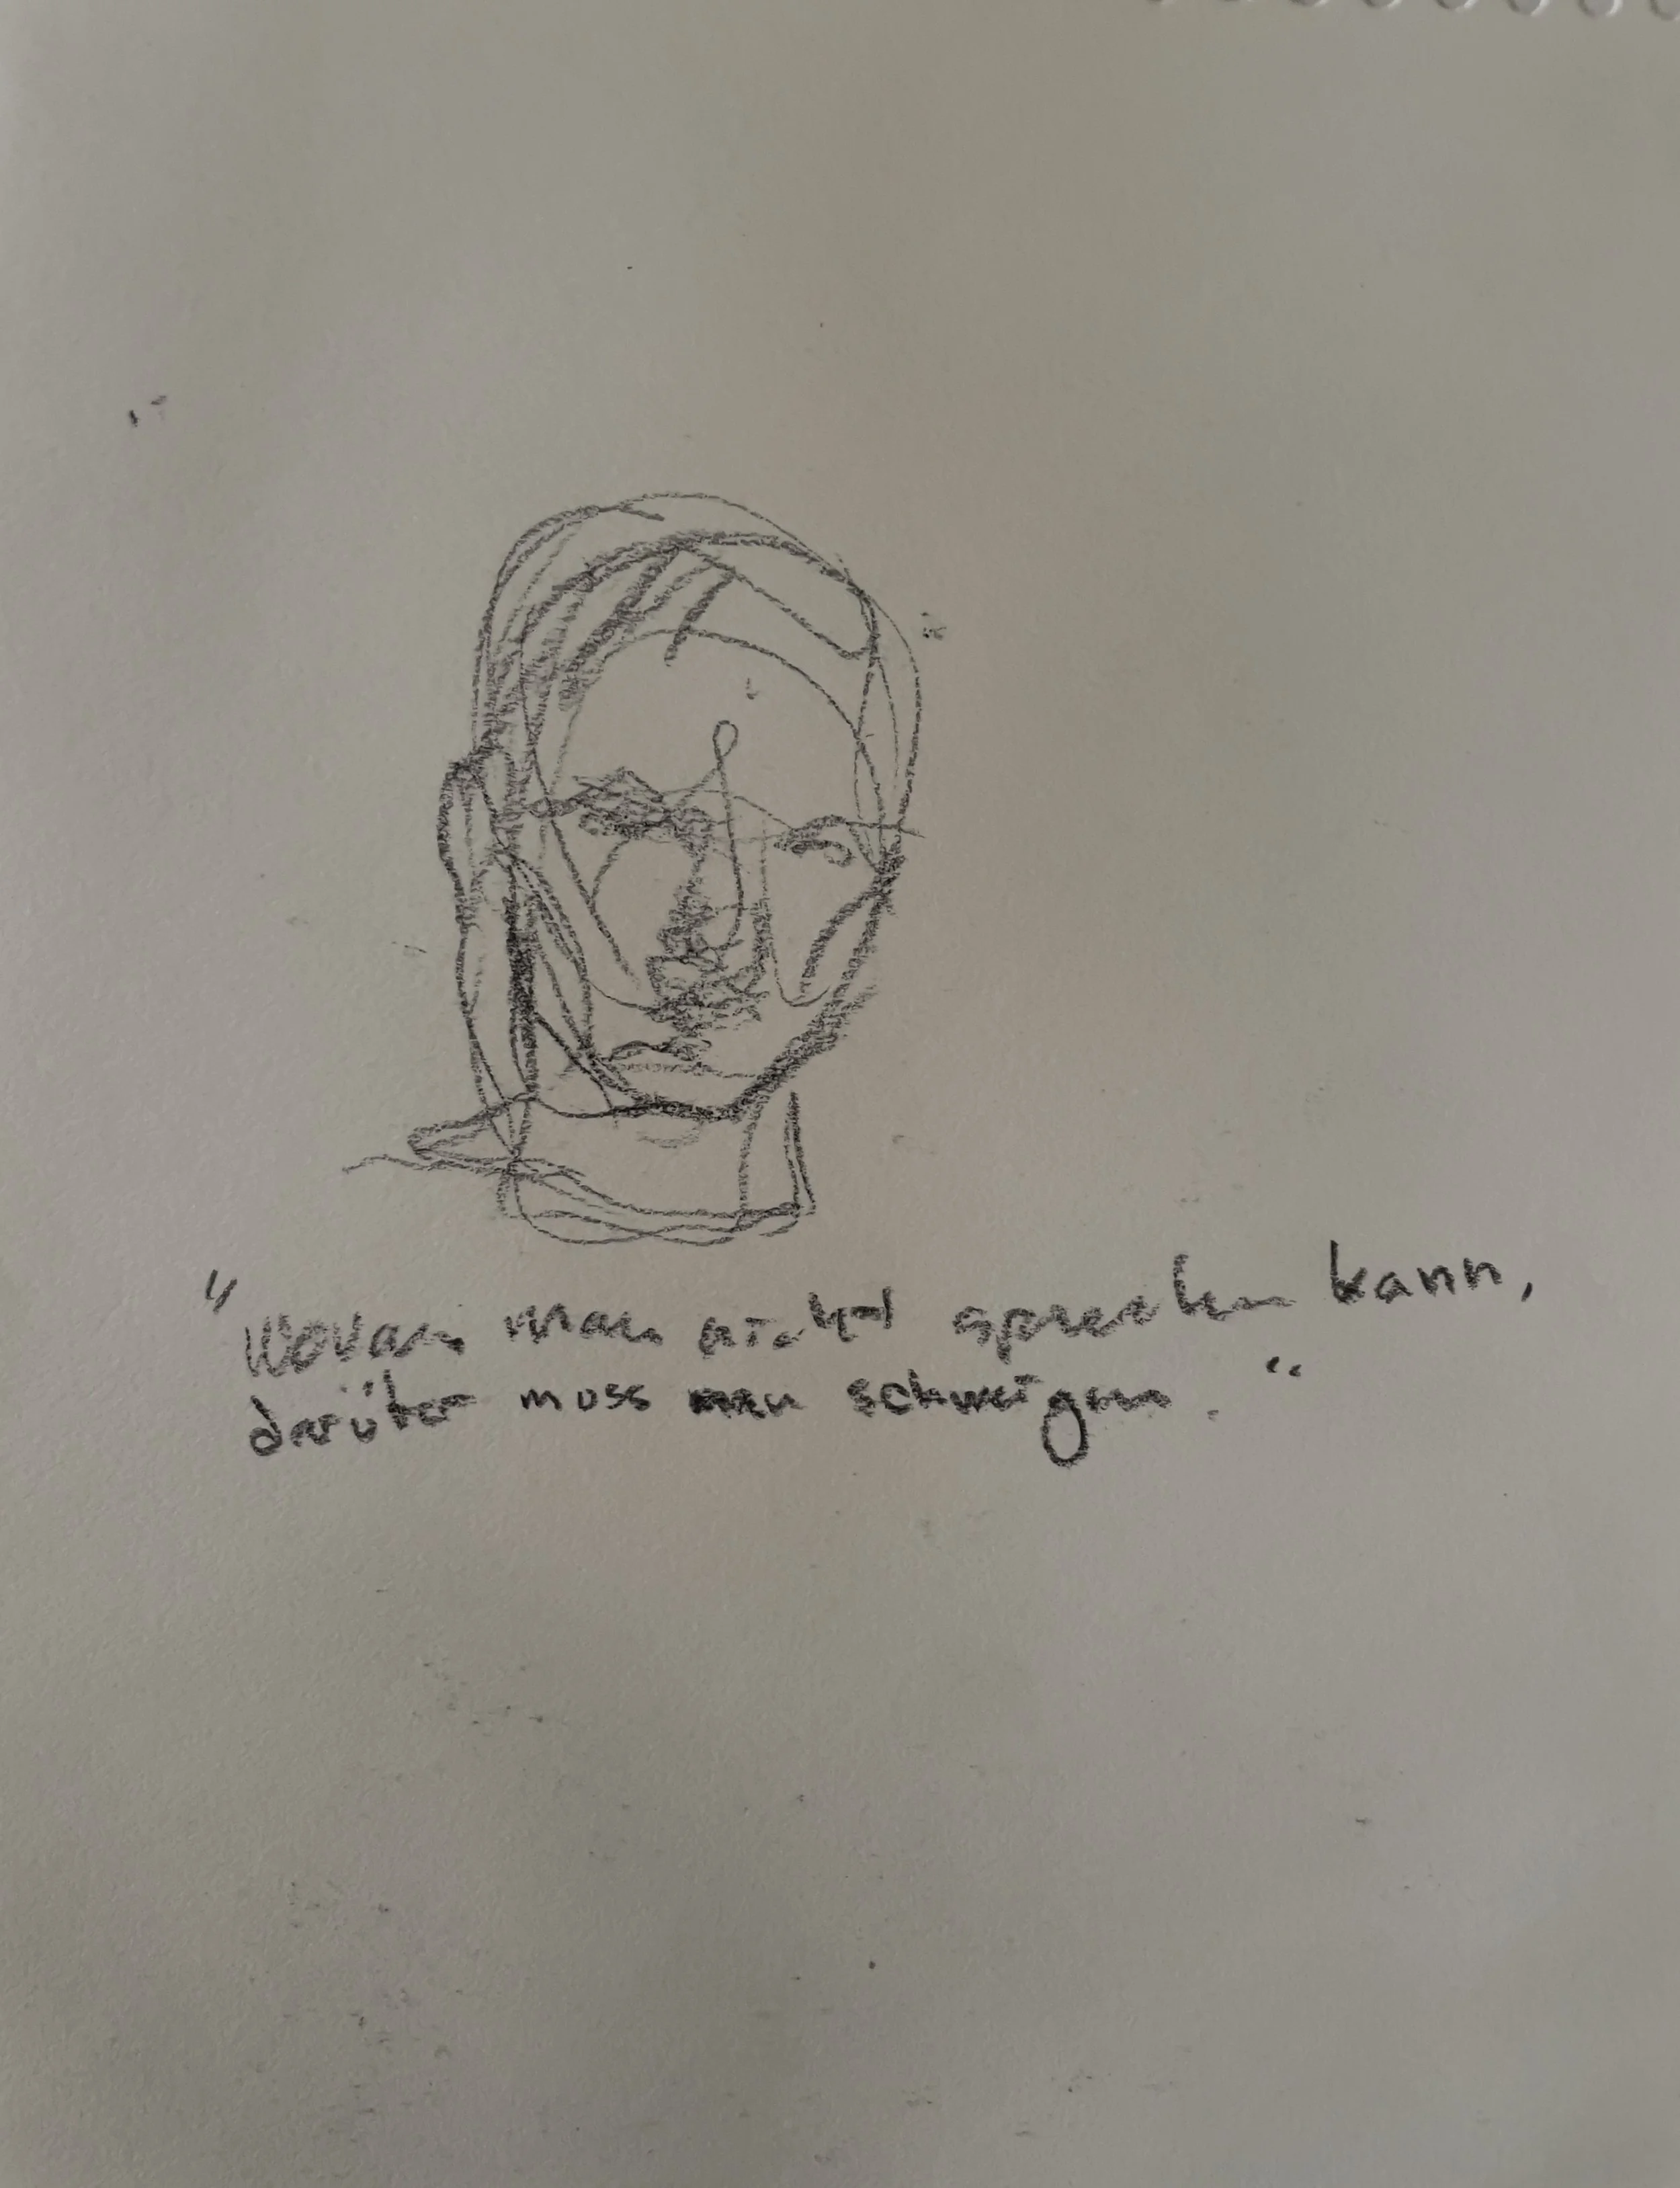 "Wovon man nicht sprechen kann,
darüber muss man schweigen."